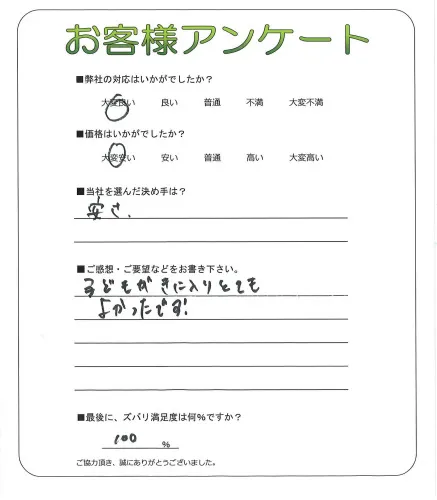 お客様アンケート
■弊社の対応はいかがでしたか？
大変良い 良い 普通 不満 大変不満
■価格はいかがでしたか？
大変安い 安い 普通 高い 大変高い
■当社を選んだ決め手は？
安さ、
■ご感想・ご要望などをお書き下さい。
子どもがきに入りとても
よかったです!
■最後に、ズバリ満足度は何%ですか？
100 %
ご協力頂き、誠にありがとうございました。